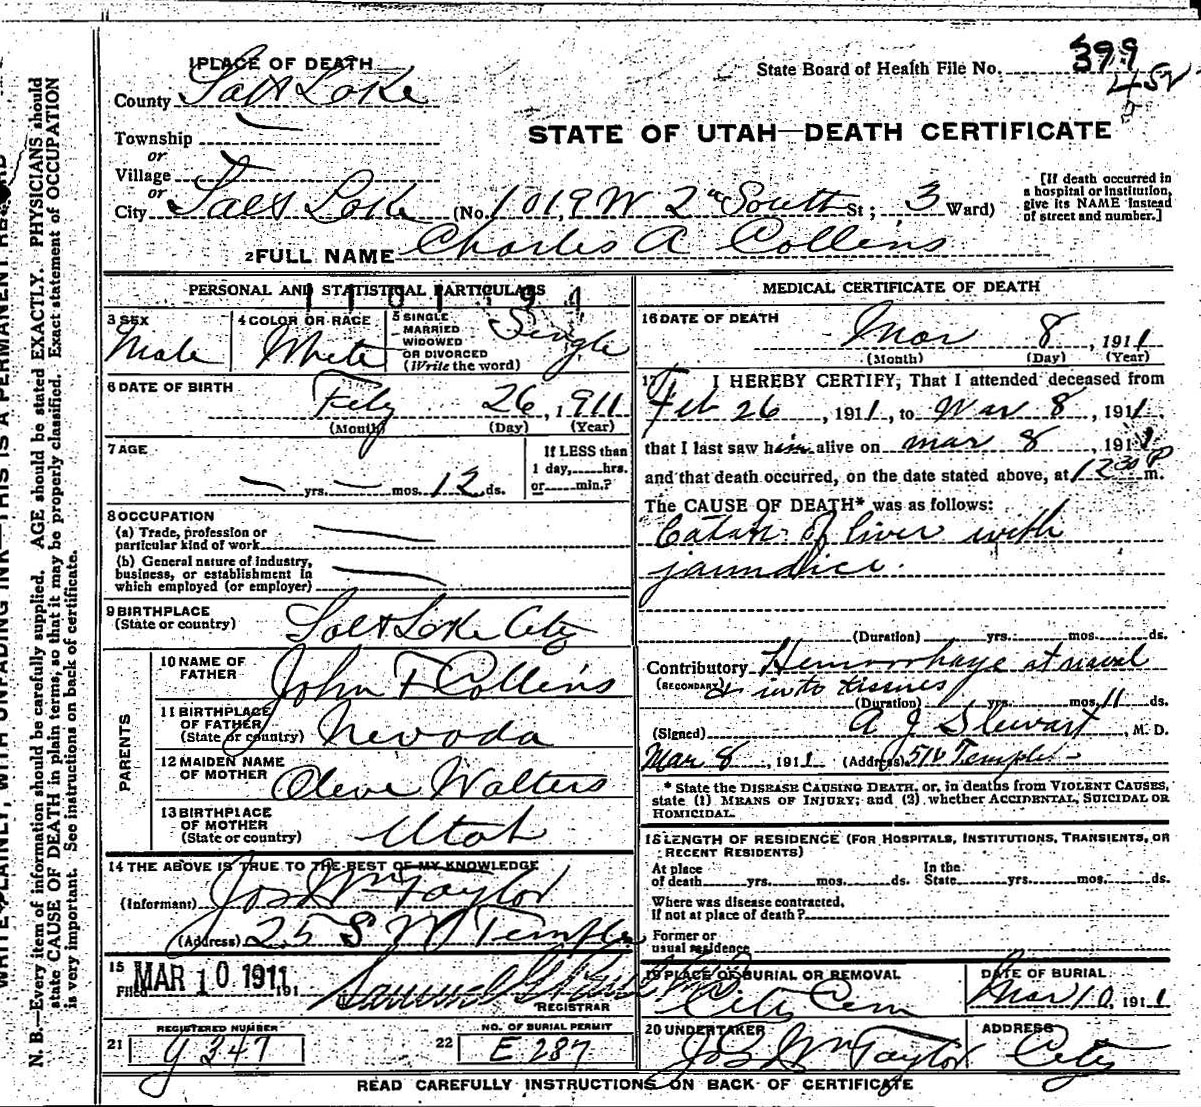 1 PLACE OF DEATH
State Board of Health File No. 399
452
County Salt Lake
STATE OF UTAH—DEATH CERTIFICATE
Township
or
Village
or
City Salt Lake (No. 1019 W 2nd South St; 3 Ward)
[If death occurred in
a hospital or institution,
give its NAME instead
of street and number.]
2 FULL NAME Charles A Collins
PERSONAL AND STATISTICAL PARTICULARS
3 SEX Male
4 COLOR OR RACE White
5 SINGLE
MARRIED
WIDOWED
OR DIVORCED
(Write the word) Single
6 DATE OF BIRTH
Feby 26, 1911
(Month) (Day) (Year)
7 AGE
— yrs. — mos. 12 ds.
If LESS than
1 day, hrs.
or min.?
8 OCCUPATION
(a) Trade, profession or
particular kind of work
(b) General nature of industry,
business, or establishment in
which employed (or employer)
9 BIRTHPLACE
(State or country) Salt Lake City
PARENTS
10 NAME OF
FATHER John F Collins
11 BIRTHPLACE
OF FATHER
(State or country) Nevada
12 MAIDEN NAME
OF MOTHER Olive Walters
13 BIRTHPLACE
OF MOTHER
(State or country) Utah
14 THE ABOVE IS TRUE TO THE BEST OF MY KNOWLEDGE
(Informant) Jos Wm Taylor
(Address) 25 S W Temple
15
Filed MAR 10 1911 191
Samuel G
REGISTRAR
REGISTERED NUMBER
21 G 347
NO. OF BURIAL PERMIT
22 E 287
MEDICAL CERTIFICATE OF DEATH
16 DATE OF DEATH
Mar 8, 1911
(Month) (Day) (Year)
17 I HEREBY CERTIFY, That I attended deceased from
Feb 26, 1911, to Mar 8, 1911,
that I last saw him alive on Mar 8, 1911
and that death occurred, on the date stated above, at 12 30 P m.
The CAUSE OF DEATH* was as follows:
Catarr. of liver with
jaundice.
(Duration) yrs. mos. ds.
Contributory Hemorrhage at navel
(SECONDARY) & into tissues
(Duration) yrs. mos. 11 ds.
(Signed) A J Stewart, M. D.
Mar 8, 1911 (Address) 516 Temple
* State the DISEASE CAUSING DEATH, or, in deaths from VIOLENT CAUSES,
state (1) MEANS OF INJURY; and (2) whether ACCIDENTAL, SUICIDAL OR
HOMICIDAL.
18 LENGTH OF RESIDENCE (FOR HOSPITALS, INSTITUTIONS, TRANSIENTS, OR
RECENT RESIDENTS)
At place
of death yrs. mos. ds.
In the
State yrs. mos. ds.
Where was disease contracted,
If not at place of death?
Former or
usual residence
19 PLACE OF BURIAL OR REMOVAL
City Cem
DATE OF BURIAL
Mar 10, 1911
20 UNDERTAKER
Jos Wm Taylor
ADDRESS
City
READ CAREFULLY INSTRUCTIONS ON BACK OF CERTIFICATE
WRITE PLAINLY, WITH UNFADING INK—THIS IS A PERMANENT RECORD
N. B.—Every item of information should be carefully supplied. AGE should be stated EXACTLY. PHYSICIANS should
state CAUSE OF DEATH in plain terms, so that it may be properly classified. Exact statement of OCCUPATION
is very important. See instructions on back of certificate.